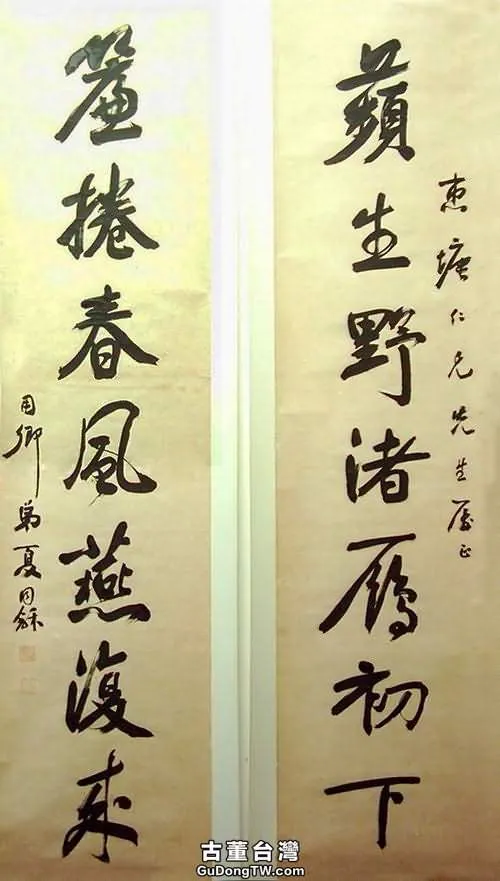 惠塘仁兄先生屬正
蘋生野渚鴈初下
簾捲春風燕復來
用卿弟夏同龢
古董台灣
GuDongTW.com